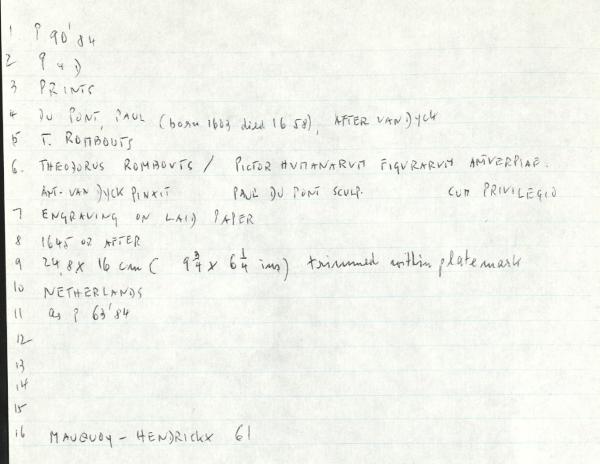 1 P 90'84
2 9
3 PRINTS
4 DU PONT, PAUL (born 1603 died 1658), AFTER VAN DYCK
5 T. ROMBOUTS
6. THEODORUS ROMBOUTS / PICTOR HUMANARUM FIGURARUM ANTVERPIAE.
ANT. VAN DYCK PINXIT PAUL DU PONT SCULP. CUM PRIVILEGIO
7 ENGRAVING ON LAID PAPER
8 1645 OR AFTER
9 24,8 x 16 cm ( 9 3/4 x 6 1/4 ins) trimmed within platemark
10 NETHERLANDS
11 as P 63'84
12
13
14
15
16 MAUQUOY - HENDRICKX 61